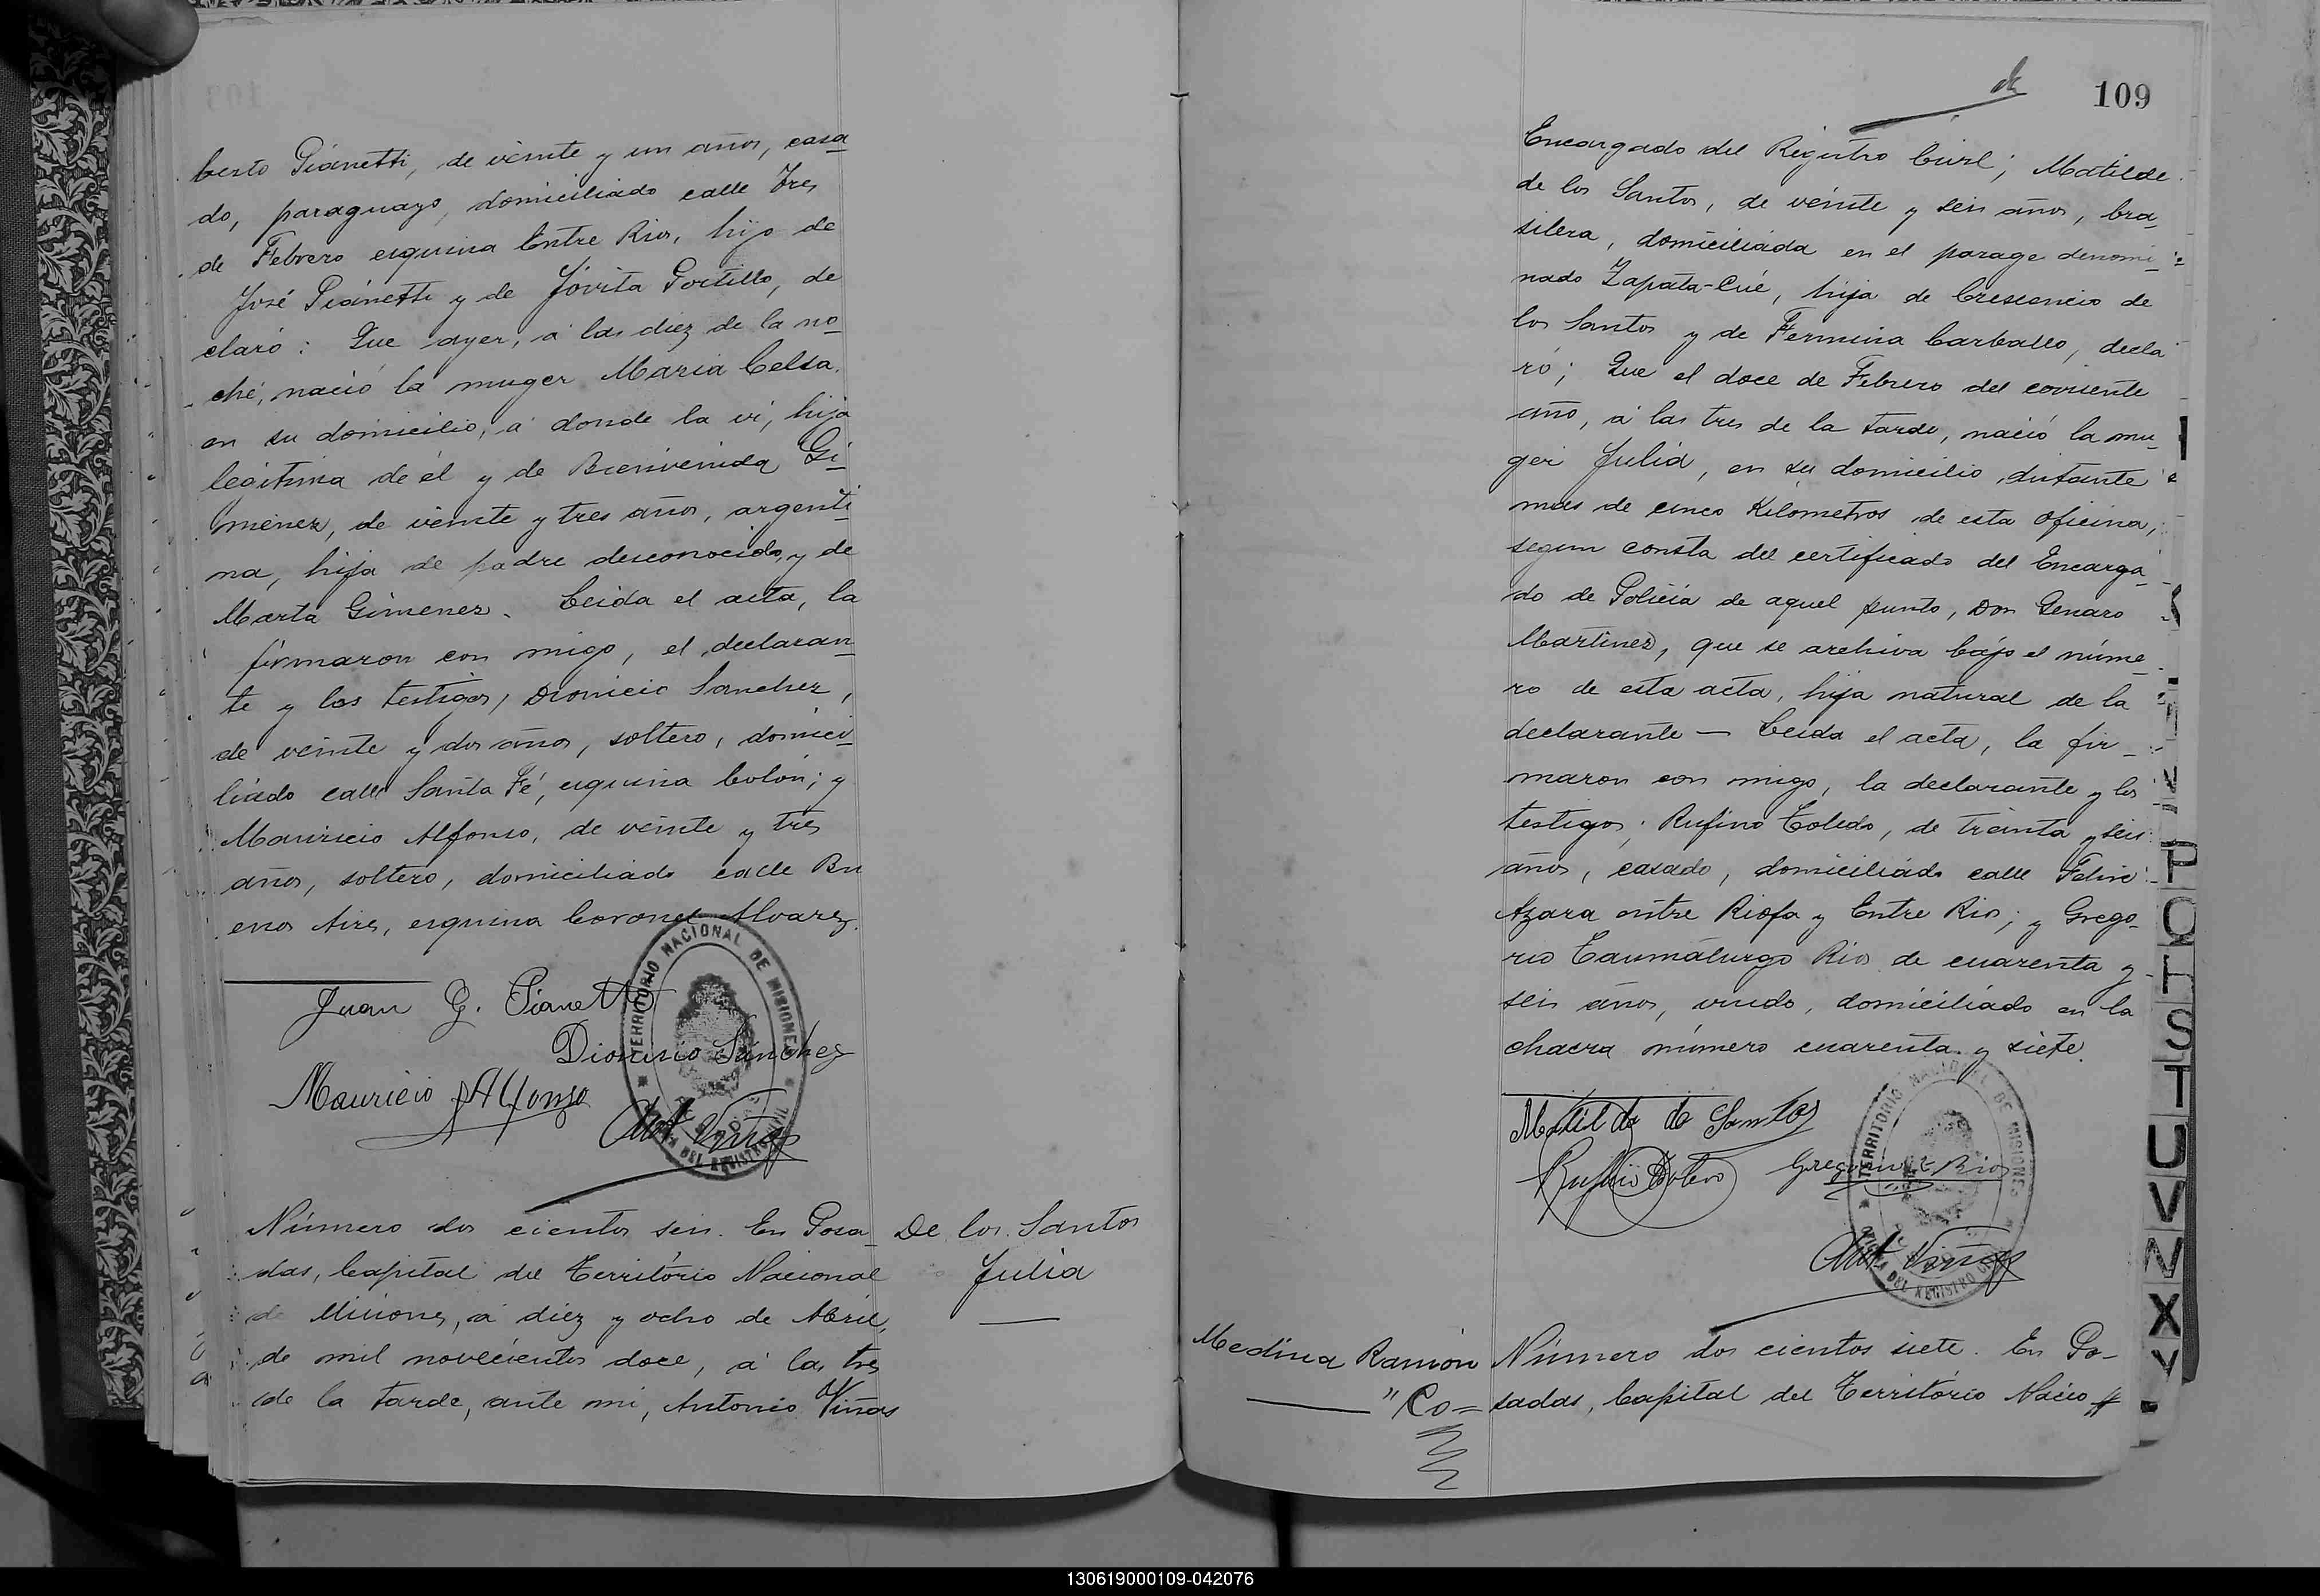 berto Pianetti, de veinte y un años, casa
do, paraguayo, domiciliado calle Tres
de Febrero esquina Entre Rios, hijo de
José Pianetti y de Jóvita Portillo, de
claró: Que ayer, á las diez de la no
che, nació la muger María Celsa,
en su domicilio, á donde la ví, hija
legítima de él y de Bienvenida Gi
menez, de veinte y tres años, argenti
na, hija de padre desconocido, y de
Marta Gimenez. Leida el acta, la
firmaron con migo, el declaran
te y los testigos, Dionicio Sanchez,
de veinte y dos años, soltero, domici
liado calle Santa Fé, esquina Colón; y
Mauricio Alfonso, de veinte y tres
años, soltero, domiciliado calle Bu
enos Aires, esquina Coronel Alvarez.
Juan G. Pianetti
Dionicio Sánchez
Mauricio Alfonso
Ant Viñas
TERRITORIO NACIONAL DE MISIONES
DEL REGISTRO CIVIL
Número dos cientos seis. En Posa
das, Capital del Território Nacional
de Misiones, á diez y ocho de Abril,
de mil novecientos doce, á las tres
de la tarde, ante mi, Antonio Viñas
De los Santos
Julia
109
Encargado del Registro Civil; Matilde
de los Santos, de veinte y seis años, bra
silera, domiciliada en el parage denomi
nado Zapata-Cué, hija de Crescencio de
los Santos y de Fermina Carballo, decla
ró; Que el doce de Febrero del corriente
año, á las tres de la tarde, nació la mu
ger Julia, en su domicilio, distante
mas de cinco Kilómetros de esta oficina,
segun consta del certificado del Encarga
do de Policía de aquel punto, Don Genaro
Martinez, que se archiva bajo el núme
ro de esta acta, hija natural de la
declarante — Leida el acta, la fir
maron con migo, la declarante y los
testigos; Rufino Toledo, de treinta y seis
años, casado, domiciliado calle Felix
Azara entre Rioja y Entre Rios; y Grego
rio Taumaturgo Rios de cuarenta y
seis años, viudo, domiciliado en la
chacra número cuarenta y siete.
Matilde de Santos
Gregorio T. Rios
Ant Viñas
TERRITORIO NACIONAL DE MISIONES
DEL REGISTRO CIVIL
Medina Ramón
" Co=
Número dos cientos siete. En Po-
sadas, Capital del Território Nacio
P
Q
H
S
T
U
V
N
X
Y
130619000109-042076